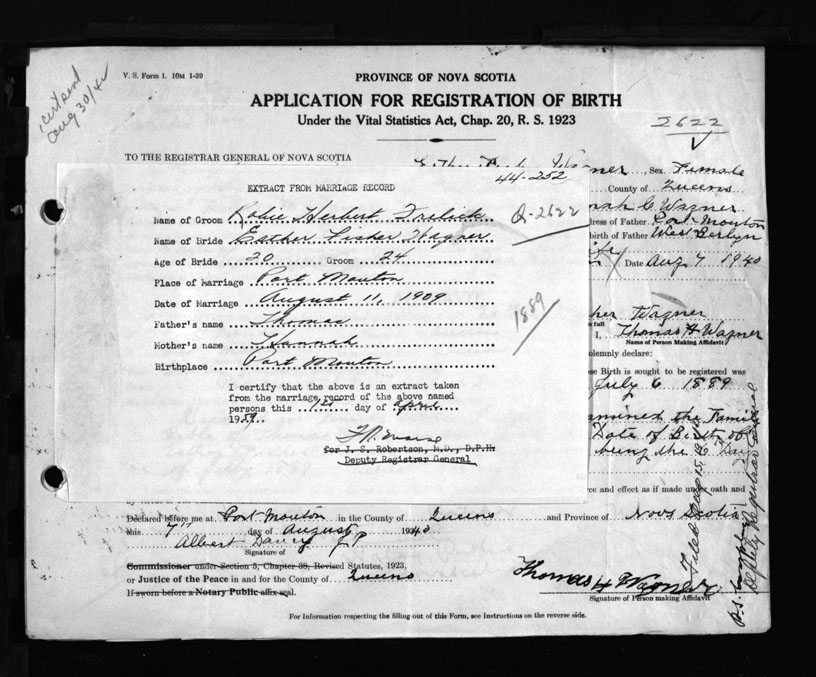 V. S. Form 1. 10M 1-39
cert sent
aug 30/40
PROVINCE OF NOVA SCOTIA
APPLICATION FOR REGISTRATION OF BIRTH
Under the Vital Statistics Act, Chap. 20, R. S. 1923
2622
TO THE REGISTRAR GENERAL OF NOVA SCOTIA
Wagner, Sex Female
County of Queens
Hannah C Wagner
dress of Father Port Mouton
birth of Father West Berlyn
Date Aug 7 1940
her Wagner
n full
I, Thomas H Wagner
Name of Person Making Affidavit
olemnly declare:
se Birth is sought to be registered was
July 6 1889
amined the Family
Date of Birth of
being the
EXTRACT FROM MARRIAGE RECORD
44-252
Q-2622
Name of Groom Robie Herbert Frelick
Name of Bride Esther Fisher Wagner
Age of Bride 20 Groom 24
Place of Marriage Port Mouton
Date of Marriage August 11, 1909
1889
Father's name Thomas
Mother's name Hannah
Birthplace Port Mouton
I certify that the above is an extract taken
from the marriage record of the above named
persons this 1st day of April
19
for J. S. Robertson, M.D., D.P.H.
Deputy Registrar General
rce and effect as if made under oath and
Declared before me at Port Mouton in the County of Queens and Province of Nova Scotia
this 7th day of August 1940
Albert Daury J P
Signature of
Commissioner under Section 5, Chapter 38, Revised Statutes, 1923,
or Justice of the Peace in and for the County of Queens
If sworn before a Notary Public affix seal.
Thomas H Wagner
Signature of Person making Affidavit
Filed
Deputy Registrar General
For Information respecting the filling out of this Form, see Instructions on the reverse side.